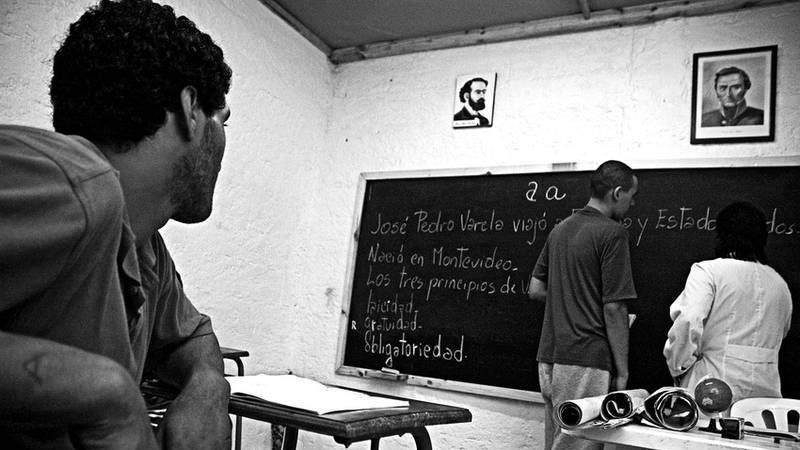 a a
José Pedro Varela viajó a y Estados
Nació en Montevideo.
Los tres principios de
laicidad.
R gratuidad.
Obligatoriedad.